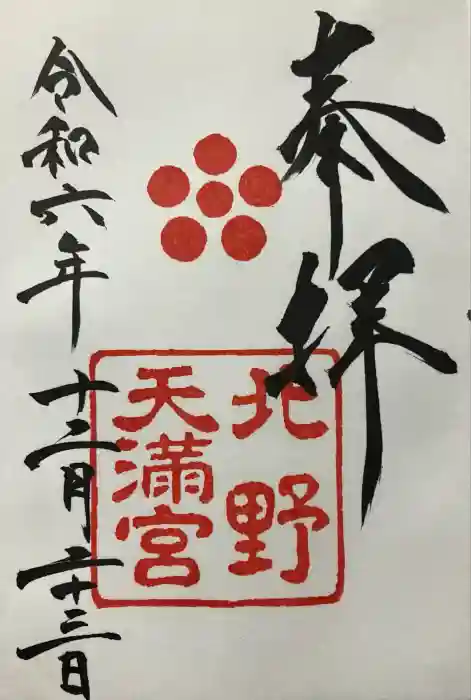 奉拝
北野
天満宮
令和六年十二月二十三日